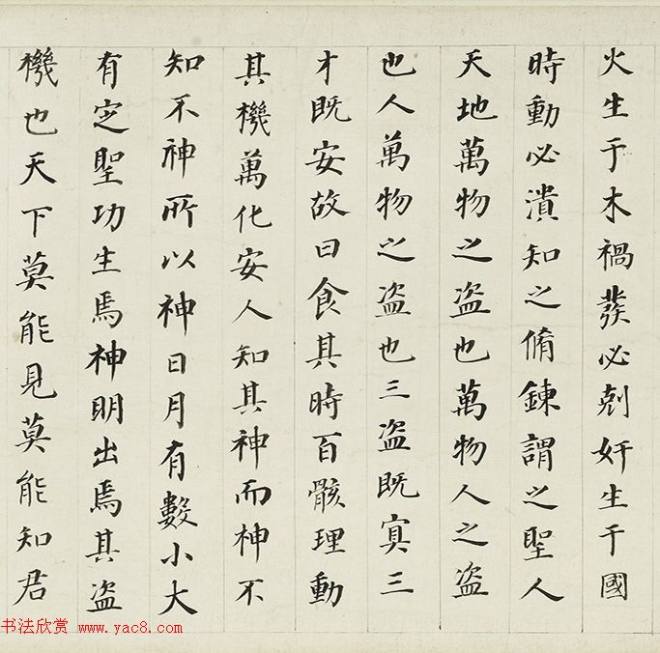 火生于木禍發必剋奸生于國
時動必潰知之脩鍊謂之聖人
天地萬物之盗也萬物人之盗
也人萬物之盗也三盗既㝠三
才既安故曰食其時百骸理動
其機萬化安人知其神而神不
知不神所以神日月有數小大
有定聖功生焉神明出焉其盗
機也天下莫能見莫能知君
书法欣赏 www.yac8.com